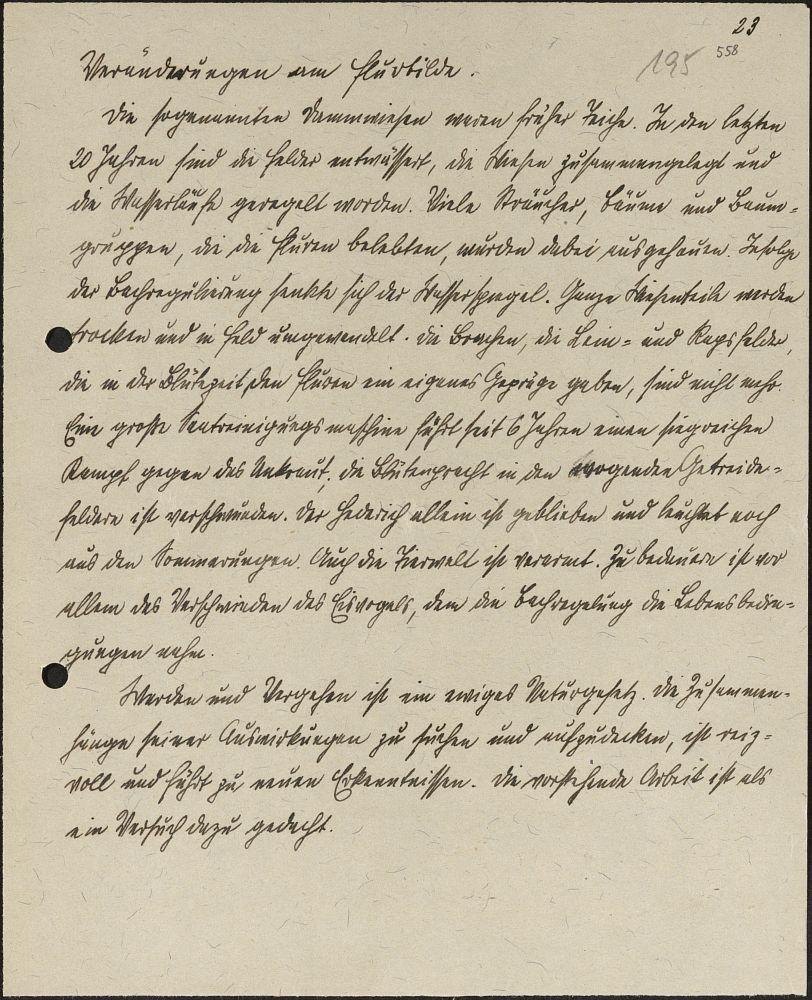 23
195 558
Veränderungen am Flurbilde.
Die sogenannten Dammwiesen waren früher Teiche. In den letzten
20 Jahren sind die Felder entwässert, die Wiesen zusammengelegt und
die Wasserläufe geregelt worden. Viele Sträucher, Bäume und Baum-
gruppen, die die Fluren belebten, wurden dabei ausgehauen. Infolge
der Bachregulierung senkte sich der Wasserspiegel. Ganze Wiesenteile werden
trocken und in Feld umgewandelt. Die Brachen, die Lein- und Rapsfelder,
die in der Blütezeit den Fluren ein eigenes Gepräge gaben, sind nicht mehr.
Eine große Saatreinigungsmaschine führt seit 6 Jahren einen siegreichen
Kampf gegen das Unkraut; die Blütenpracht in den wogenden Getreide-
feldern ist verschwunden. Der Hederich allein ist geblieben und leuchtet noch
aus den Sommerungen. Auch die Tierwelt ist verarmt. Zu bedauern ist vor
allem das Verschwinden des Eisvogels, dem die Bachregelung die Lebensbedin-
gungen nahm.
Werden und Vergehen ist ein ewiges Naturgesetz. Die Zusammen-
hänge seiner Auswirkungen zu suchen und aufzudecken, ist reiz-
voll und führt zu neuen Erkenntnissen. Die vorstehende Arbeit ist als
ein Versuch dazu gedacht.